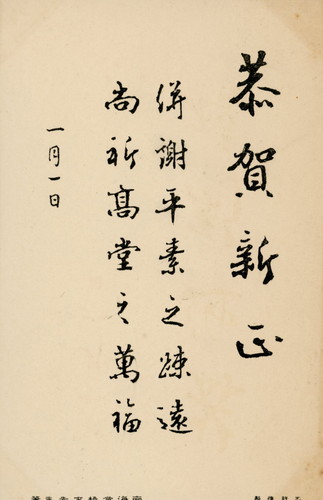 恭賀新正
併謝平素之疎遠
尚祈髙堂之萬福
一月一日